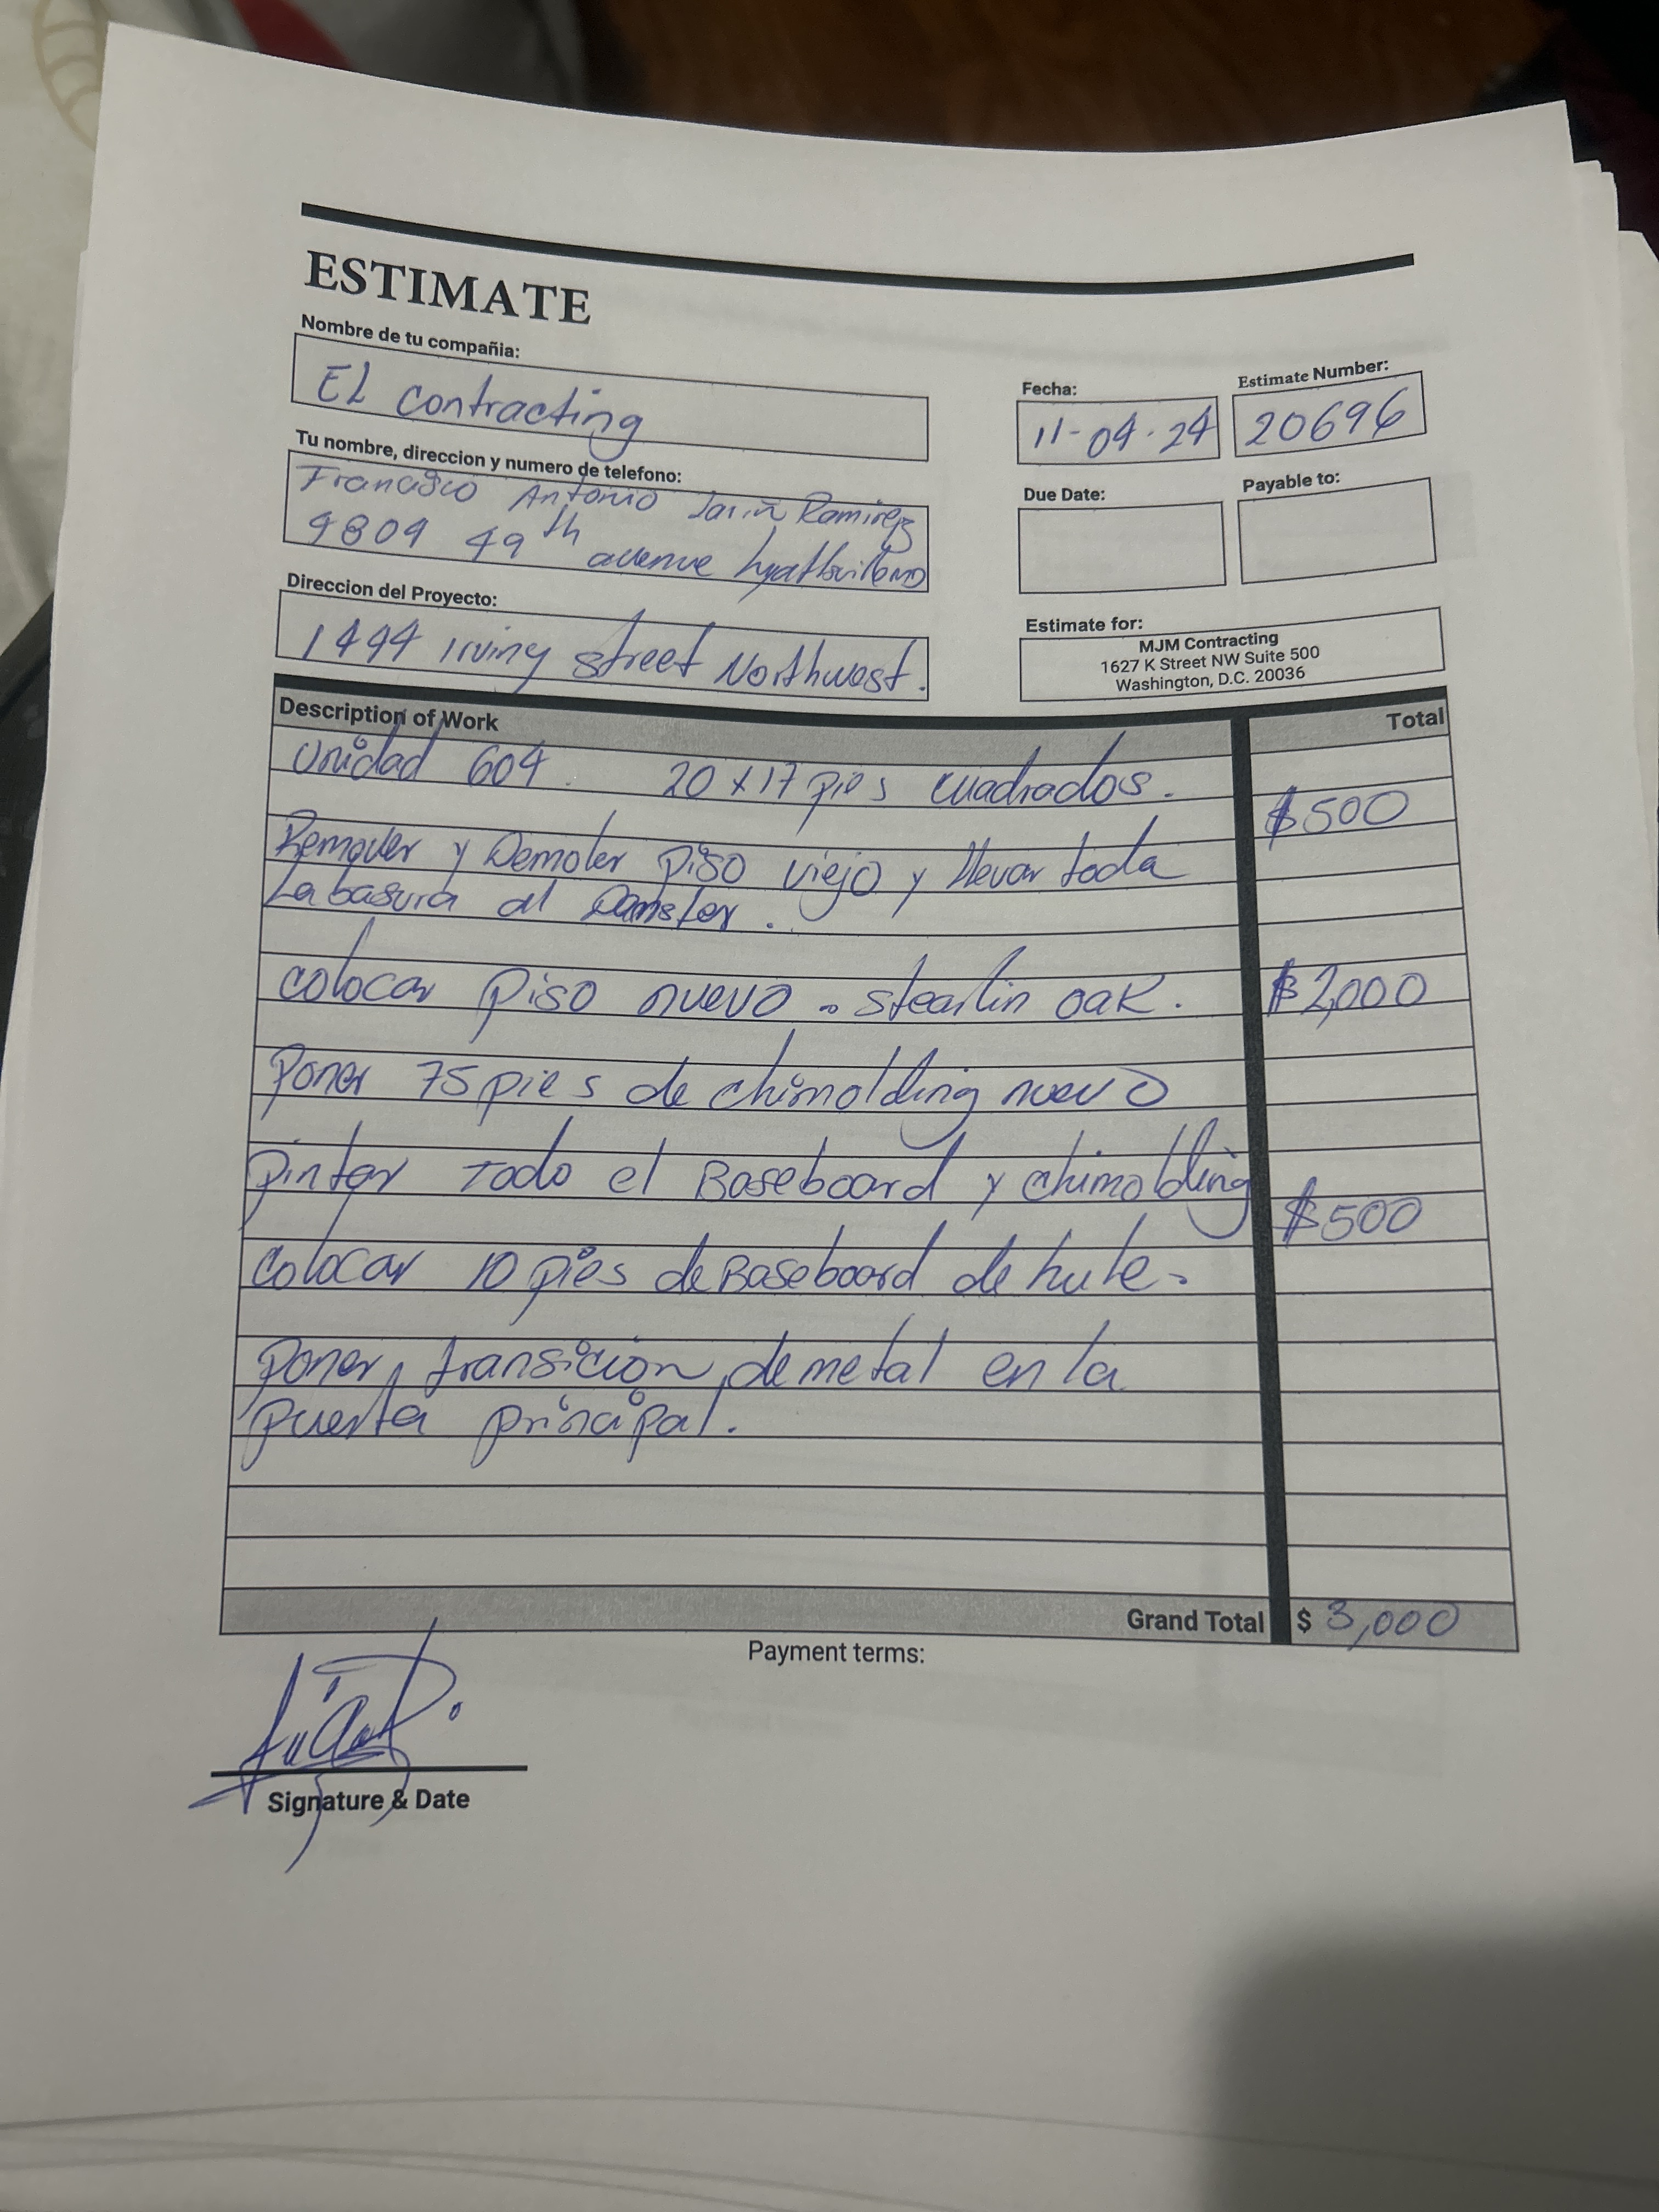 ESTIMATE
Nombre de tu compañia:
EL contracting
Fecha:
11-04-24
Estimate Number:
20696
Tu nombre, direccion y numero de telefono:
Francisco Antonio Ramirez
9809 49th avenue
Due Date:
Payable to:
Direccion del Proyecto:
1444 Irving street Northwest.
Estimate for:
MJM Contracting
1627 K Street NW Suite 500
Washington, D.C. 20036
Description of Work Total
Unidad 604. 20 x 17 pies cuadrados.
$500
Remover y Demoler piso viejo y llevar toda
La basura al
colocar piso nuevo - stearlin oak. $2,000
Poner 75 pies de chimolding nuevo
pintar todo el Baseboard y chimolding
$500
colocar 10 pies de Baseboard de hule.
poner, transicion, de metal en la
puerta principal.
Grand Total $ 3,000
Payment terms:
Signature & Date